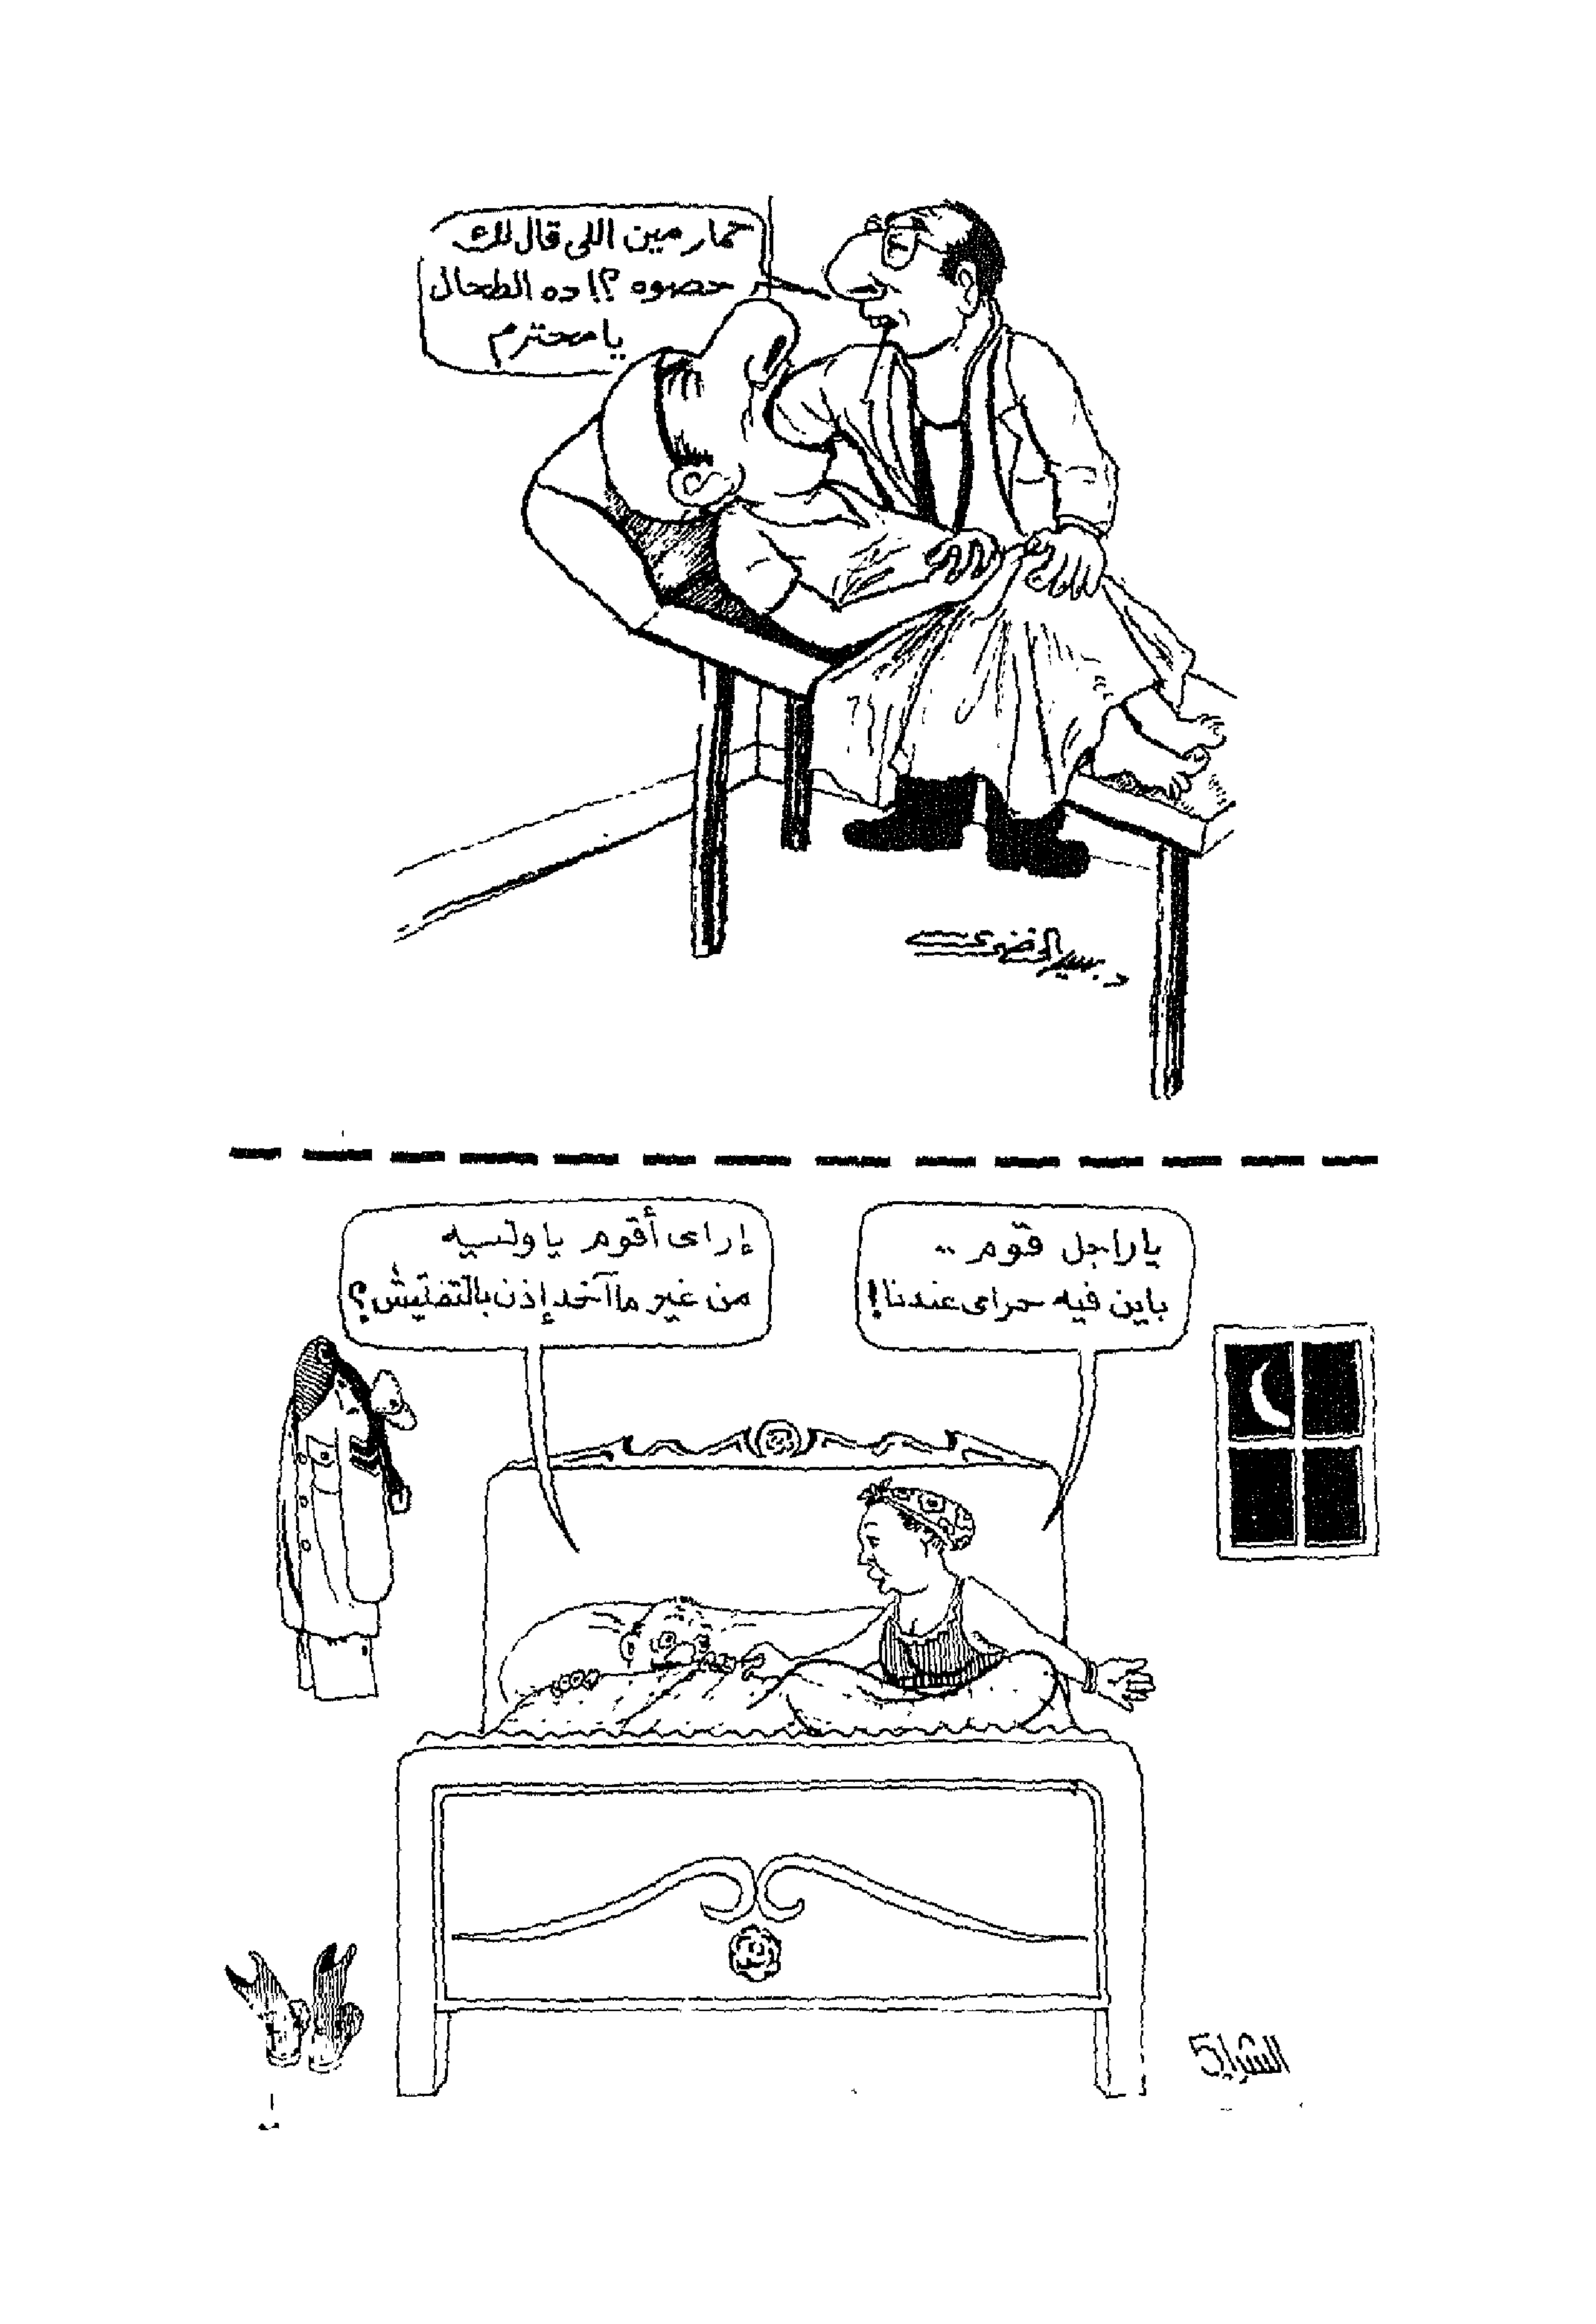 حمار مين اللى قال لك
حصوه ؟! ده الطحال
يا محترم
د. سمير الخضرى
ياراجل قوم ..
باين فيه حرامى عندنا!
إزاى أقوم يا ولسيه
من غير ما آخد إذن بالتفتيش؟